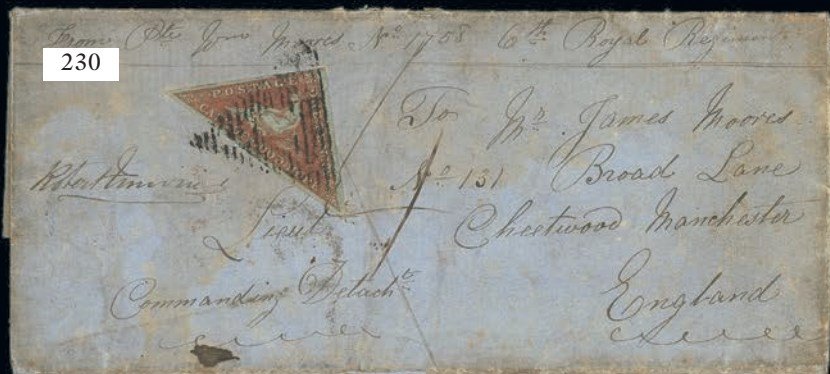 From Pte Jno Moores No 1758 6th Royal Regiment
230
POSTAGE
To Mr James Moores
No 131 Broad Lane
Cheetwood Manchester
England
Lieut
Commanding Detacht